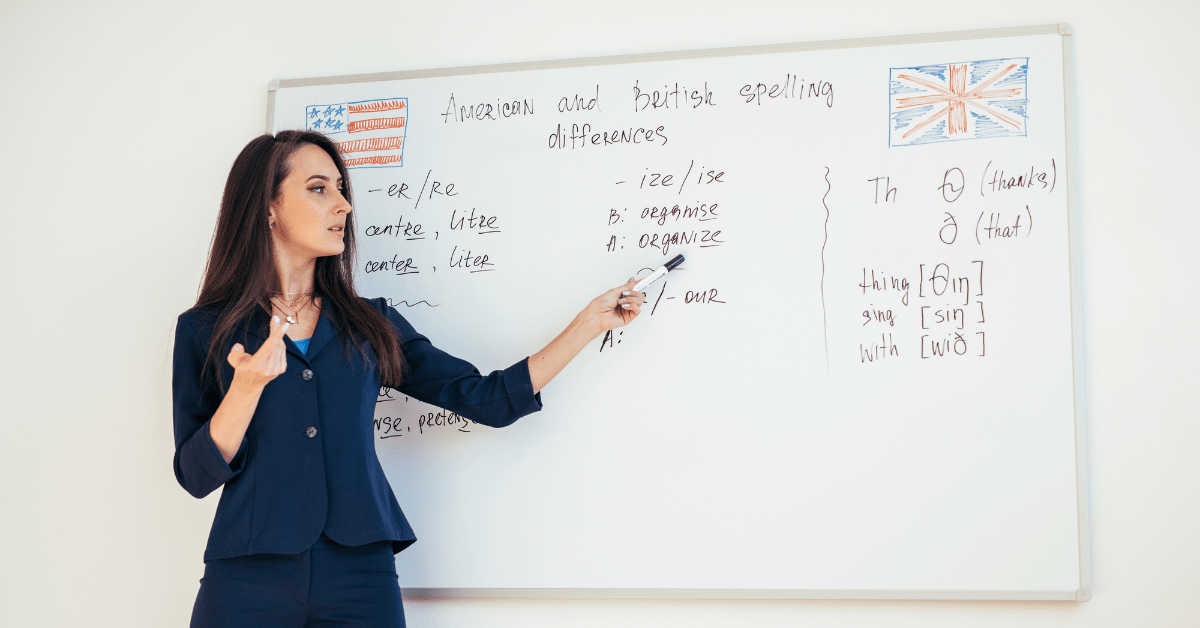 American and British spelling
differences
- ER/RE
centre, litre
center, liter
- ize/ise
B: organise
A: organize
/- our
A:
nse, pretense
Th θ (thanks)
ð (that)
thing [θiŋ]
sing [siŋ]
with [wið]